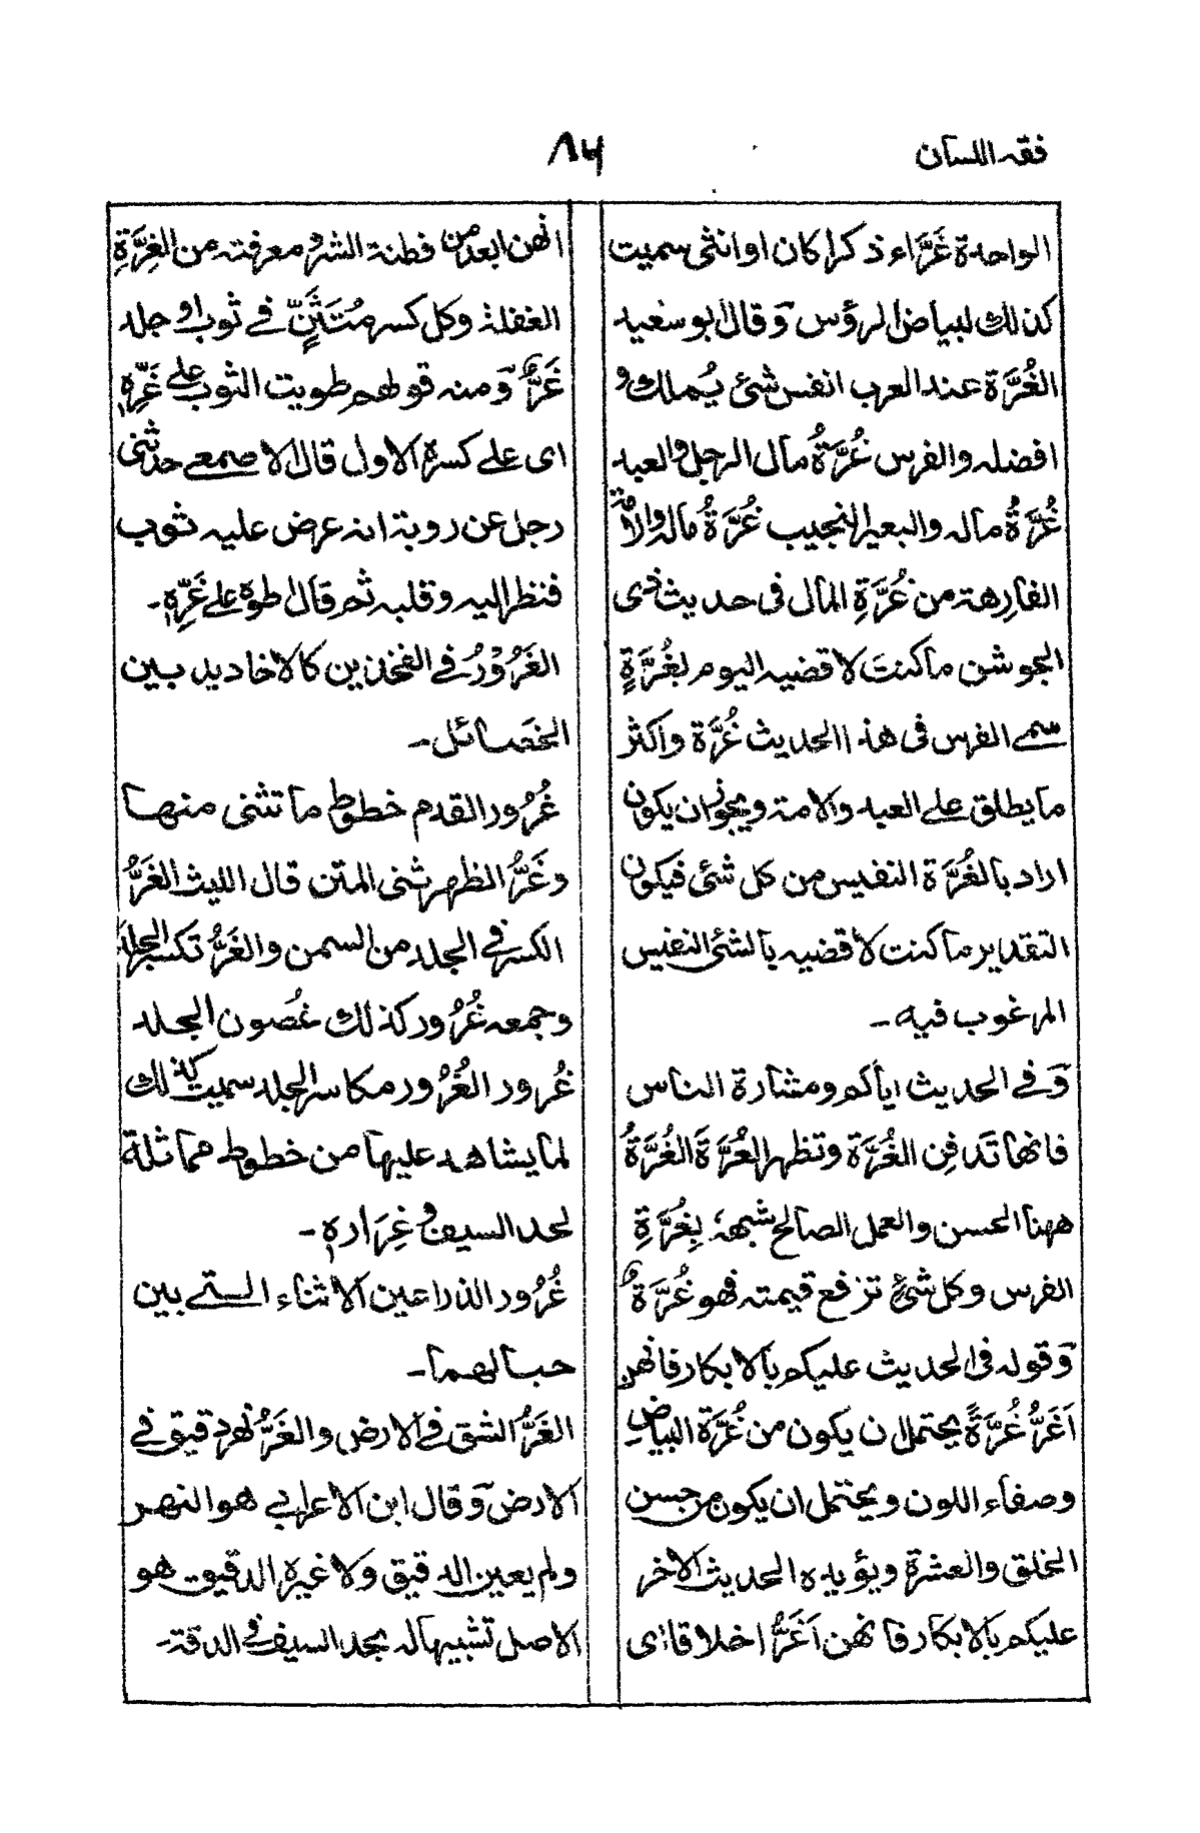 فقہ اللسان
٨٢
الواحدة غَرَّاء ذكرا كان او انثى سميت
كذلك لبياض الرؤس وَقال ابو سعيد
الغُرَّة عند العرب انفس شئ يُملك و
افضله والفرس غُرَّةُ مال الرجل والعبد
غُرَّةُ ماله والبعير النجيب غُرَّةُ ماله والامة
الفارِهة من غُرَّةِ المال فى حديث ذى
الجوشن ما كنتَ لاقضيه اليوم بغُرَّةٍ
سمے الفرس فى هذا الحديث غُرَّة واكثر
ما يطلق علے العبد والامة ويجوز ان يكون
اراد بالغُرَّة النفيس من كل شئ فيكون
التقدير ما كنت لاقضيه بالشئ النفيس
المرغوب فيه۔
وَفے الحديث اياكم ومشارة الناس
فانها تَدفِن الغُرَّة وتظهر العُرَّةَ الغُرَّةُ
ههنا الحسن والعمل الصالح شبهہٗ بِغُرَّةِ
الفرس وكل شئٍ ترفع قيمته فهو غُرَّةٌ
وَقوله فى الحديث عليكم بالابكار فانهن
اَغَرُّ غُرَّةً يحتمل ان يكون من غُرَّة البياضِ
وصفاء اللون ويحتمل ان يكون من حسن
الخلق والعشرة ويؤيده الحديث الاخر
عليكم بالابكار فانهن اَغَرُّ اخلاقا اى
انهن ابعد من فطنة الشر ومعرفته من الغِرَّةِ
الغفلة وكل كسر مُتَثَنٍّ فے ثوب او جلد
غَرٌّ وَمنه قولهم طويت الثوب علے غَرِّهٖ
اى علے كسرہ الاول قال الاصمعے حدثنى
رجل عن روبة انه عرض عليه ثوب
فنظر اليه وقلبه ثم قال اطوہ علے غَرِّهٖ۔
الغَرُوْرُ فے الفخذين كالاخاديد بين
الخصائل۔
غُرُور القدم خطوط ما تثنى منها
وغَرُّ الظهر ثنى المتن قال الليث الغَرُّ
الكسر فے الجلد من السمن والغَرُّ تكسر الجلد
وجمعه غُرُور كذلك غُصون الجلد
غُرور الغُرُور مكاسر الجلد سميت كذلك
لما يشاهد عليها من خطوط مماثلة
لحد السيف وغِرَارہٖ۔
غُرُور الذراعين الاثناء التے بين
حبالهما۔
الغَرُّ الشق فے الارض والغَرُّ نهر دقيق فے
الارض وَقال ابن الاعرابے هو النهر
ولم يعين الدقيق ولا غيرہ الدقيق هو
الاصل تشبيها له بحد السيف فے الدقة۔